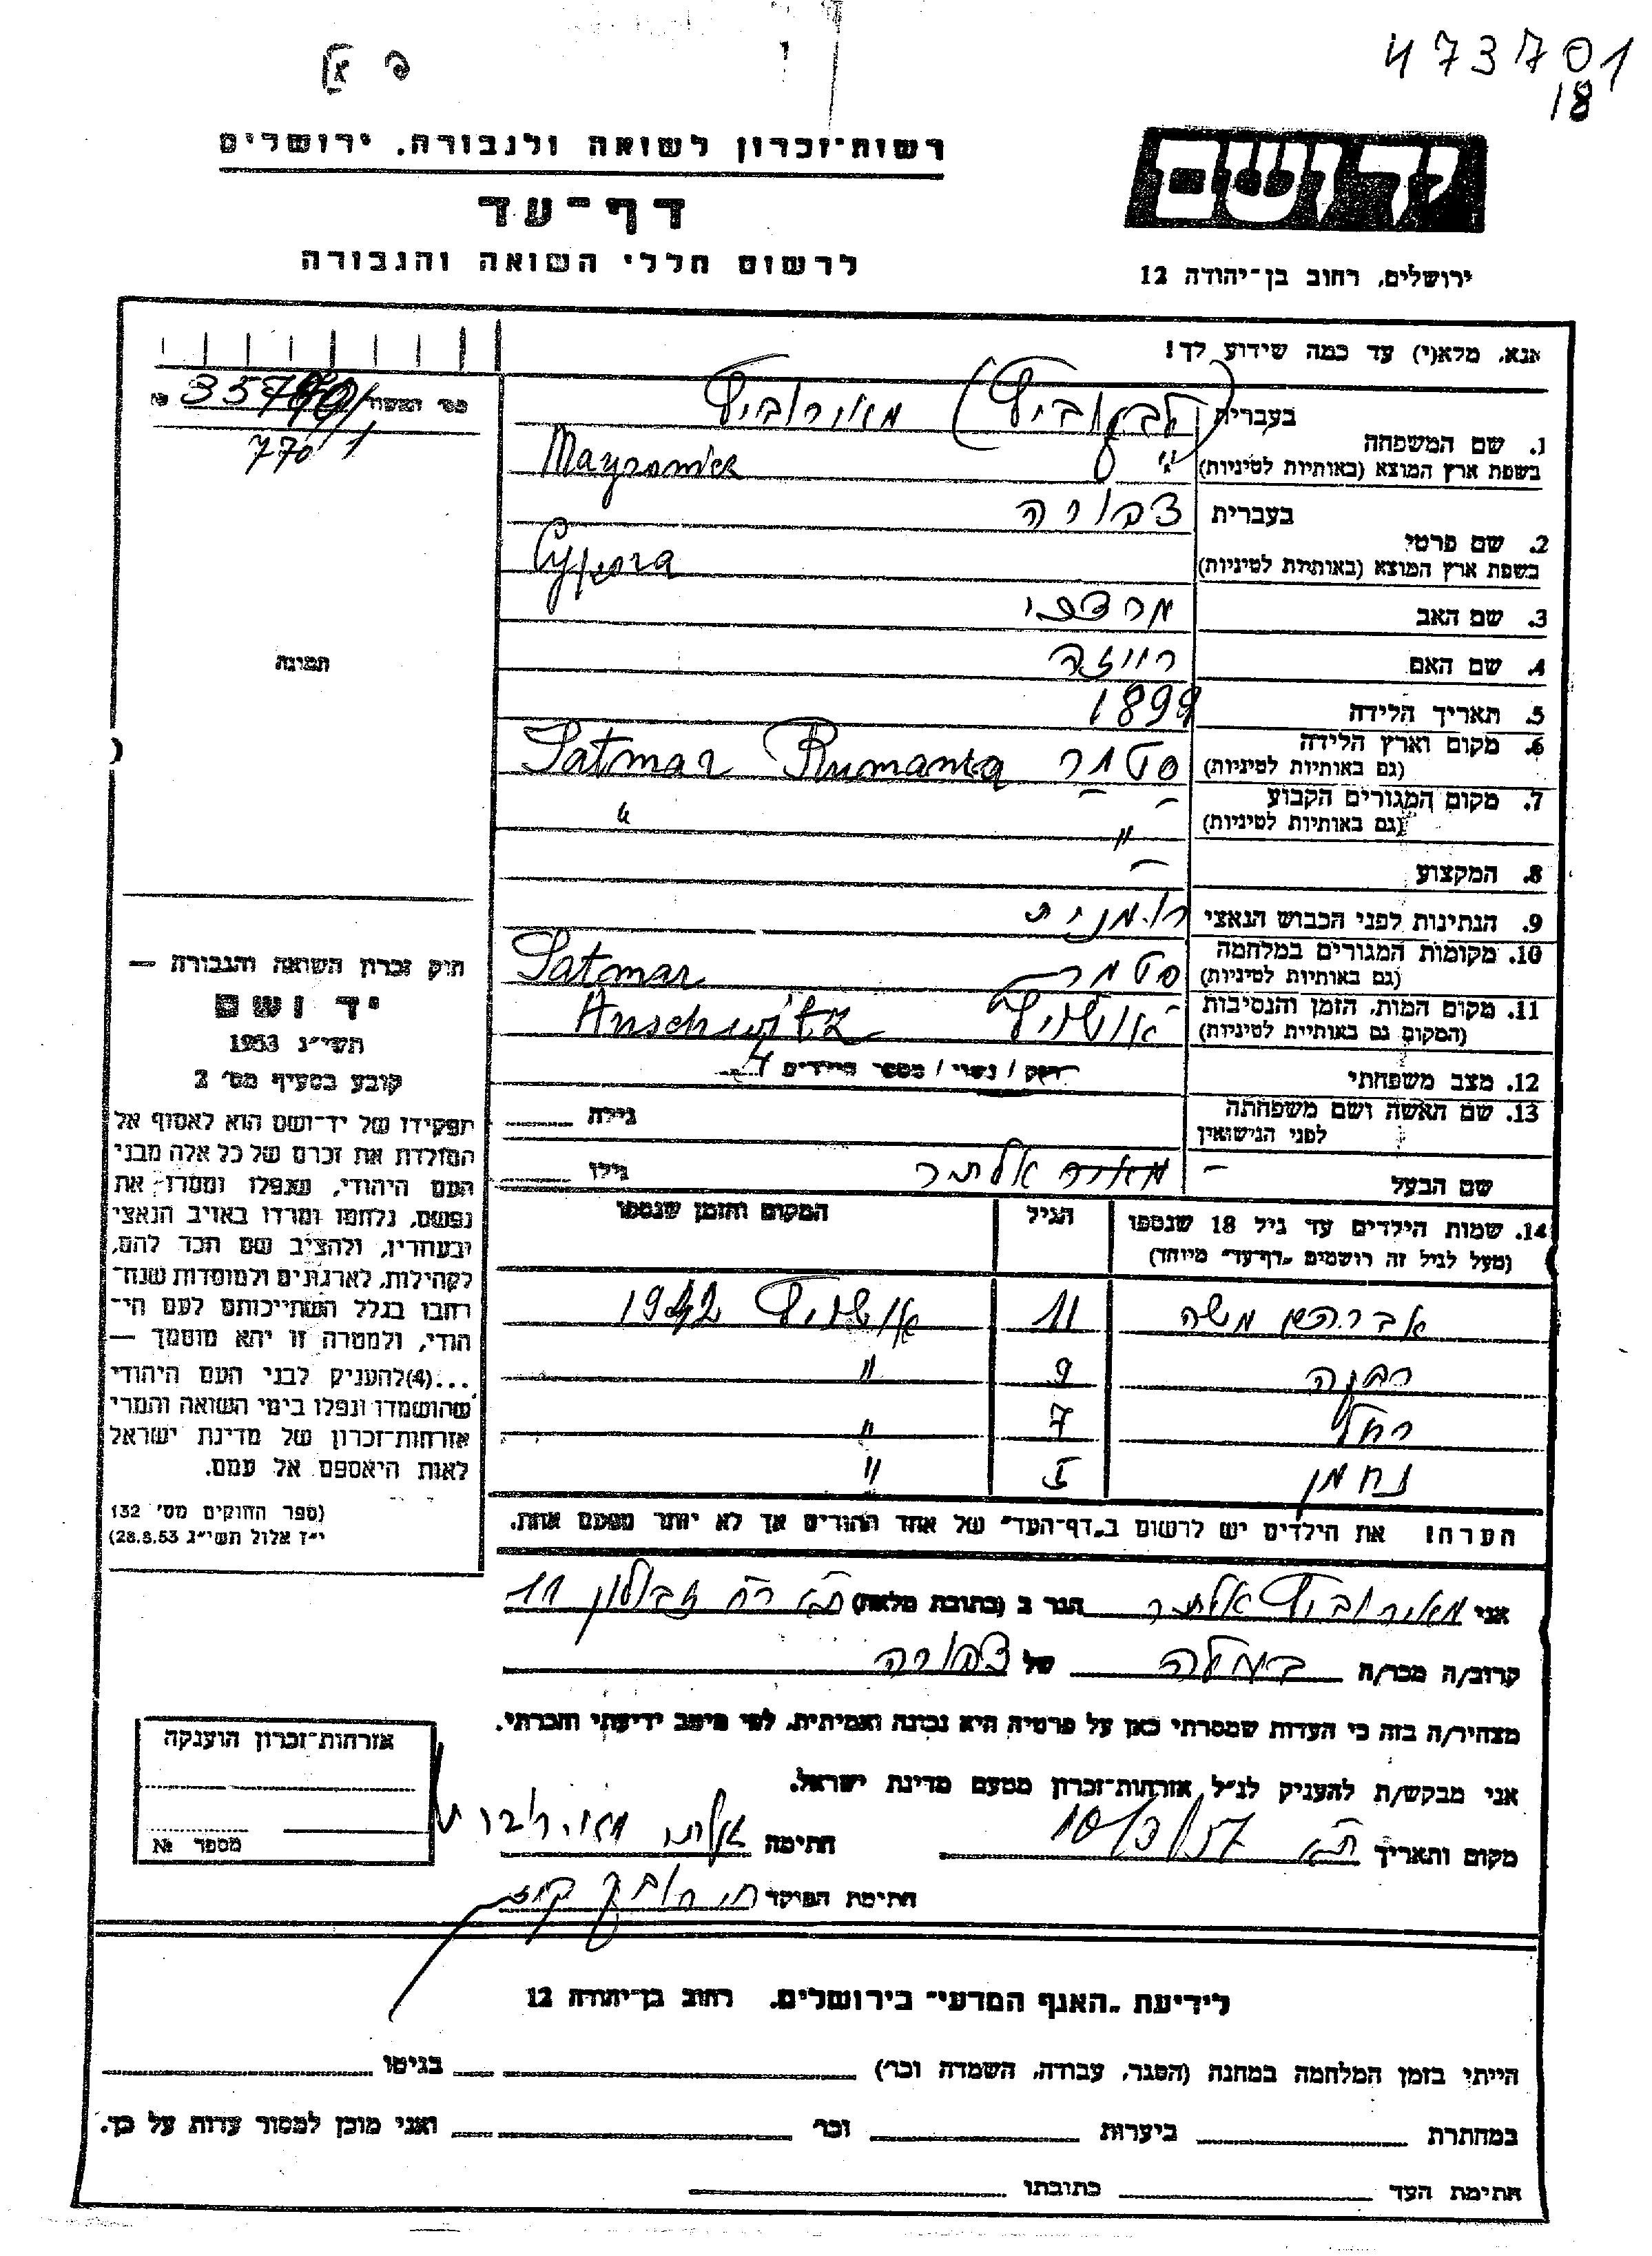 473701
18
רשות־זכרון לשואה ולגבורה, ירושלים
דף־עד
לרשום חללי השואה והגבורה
יד ושם
ירושלים, רחוב בן־יהודה 12
אנא, מלא(י) עד כמה שידוע לך!
בעברית מאירוביץ
1. שם המשפחה
בשפת ארץ המוצא (באותיות לטיניות) Mayrowicz
בעברית צפורה
2. שם פרטי
בשפת ארץ המוצא (באותיות לטיניות) Cypora
3. שם האב מרדכי
4. שם האם רייזה
5. תאריך הלידה 1899
6. מקום וארץ הלידה
(גם באותיות לטיניות) סטמר Satmar Rumania
7. מקום המגורים הקבוע
(גם באותיות לטיניות) " "
8. המקצוע —
9. הנתינות לפני הכבוש הנאצי רומנית
10. מקומות המגורים במלחמה
(גם באותיות לטיניות) סטמר Satmar
11. מקום המות, הזמן והנסיבות
(המקום גם באותיות לטיניות) אושויץ Auschwitz
12. מצב משפחתי רווק / נשוי / מספר הילדים 4
13. שם האשה ושם משפחתה
לפני הנישואין גילה
שם הבעל גילו
14. שמות הילדים עד גיל 18 שנספו הגיל המקום והזמן שנספו
(מעל לגיל זה רושמים "דף־עד" מיוחד)
אברהם משה 11 אושויץ 1942
9 "
רחל 7 "
נחמן 5 "
הערה! את הילדים יש לרשום ב"דף־העד" של אחד ההורים אך לא יותר מפעם אחת.
אני מאירוביץ אלתר הגר ב (כתובת מלאה) ת"א רח' זבולון 11
קרוב/ה מכר/ה בעלה של צפורה
מצהיר/ה בזה כי העדות שמסרתי כאן על פרטיה היא נכונה ואמיתית, לפי מיטב ידיעתי והכרתי.
אני מבקש/ת להעניק לנ"ל אזרחות־זכרון מטעם מדינת ישראל.
מקום ותאריך ת"א חתימה
חתימת הפוקד
תמונה
חוק זכרון השואה והגבורה —
יד ושם
תשי"ג 1953
קובע בסעיף מס' 2
תפקידו של יד־ושם הוא לאסוף אל
המולדת את זכרם של כל אלה מבני
העם היהודי, שנפלו ומסרו את
נפשם, נלחמו ומרדו באויב הנאצי
ובעוזריו, ולהציב שם וזכר להם,
לקהילות, לארגונים ולמוסדות שנח־
רבו בגלל השתייכותם לעם הי־
הודי, ולמטרה זו יהא מוסמך —
...(4) להעניק לבני העם היהודי
שהושמדו ונפלו בימי השואה והמרי
אזרחות־זכרון של מדינת ישראל
לאות היאספם אל עמם.
(ספר החוקים מס' 132
י"ז אלול תשי"ג 28.8.53)
אזרחות־זכרון הוענקה
מספר №
לידיעת "האגף המדעי" בירושלים, רחוב בן־יהודה 12
הייתי בזמן המלחמה במחנה (הסגר, עבודה, השמדה וכו') בגיטו
במחתרת ביערות וכו' ואני מוכן למסור עדות על כך.
חתימת העד כתובתו